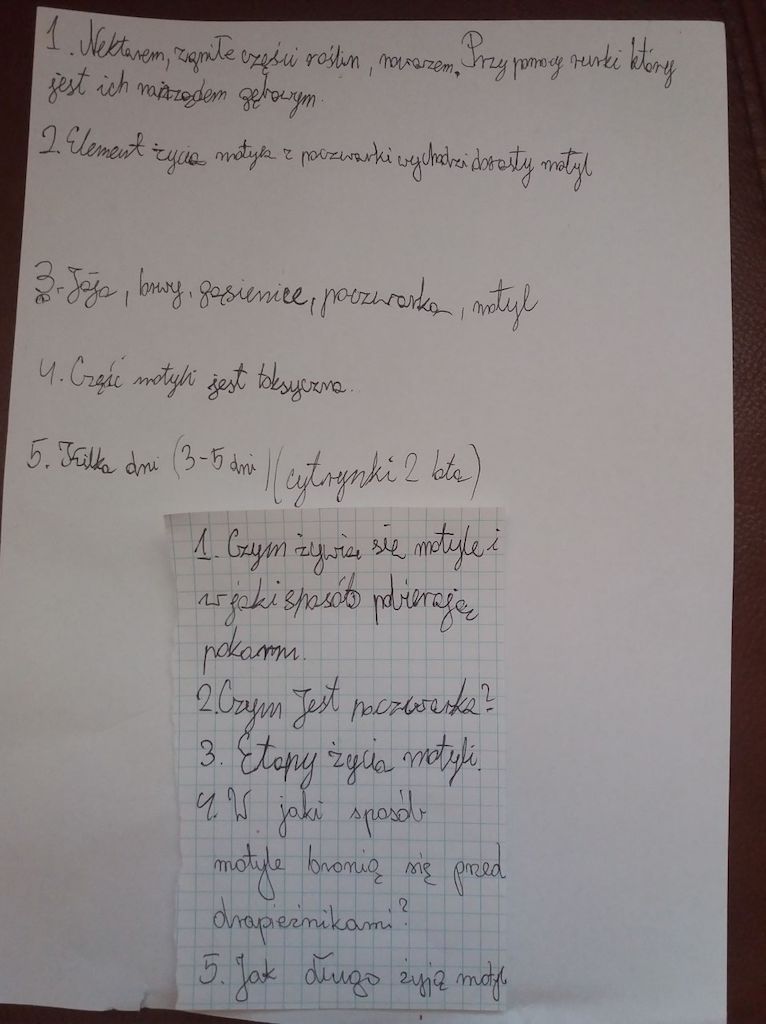 1. Nektarem, zgniłe części roślin, nawozem. Przy pomocy rurki który
jest ich narządem gębowym.
2. Element życia motyla z poczwarki wychodzi dorosły motyl
3. Jaja, larwy, gąsienice, poczwarka, motyl
4. Część motyli jest toksyczna.
5. Kilka dni (3-5 dni) (cytrynki 2 lata)
1. Czym żywią się motyle i
w jaki sposób pobierają
pokarm.
2. Czym Jest poczwarka?
3. Etapy życia motyli.
4. W jaki sposób
motyle bronią się przed
drapieżnikami?
5. Jak długo żyją motyl